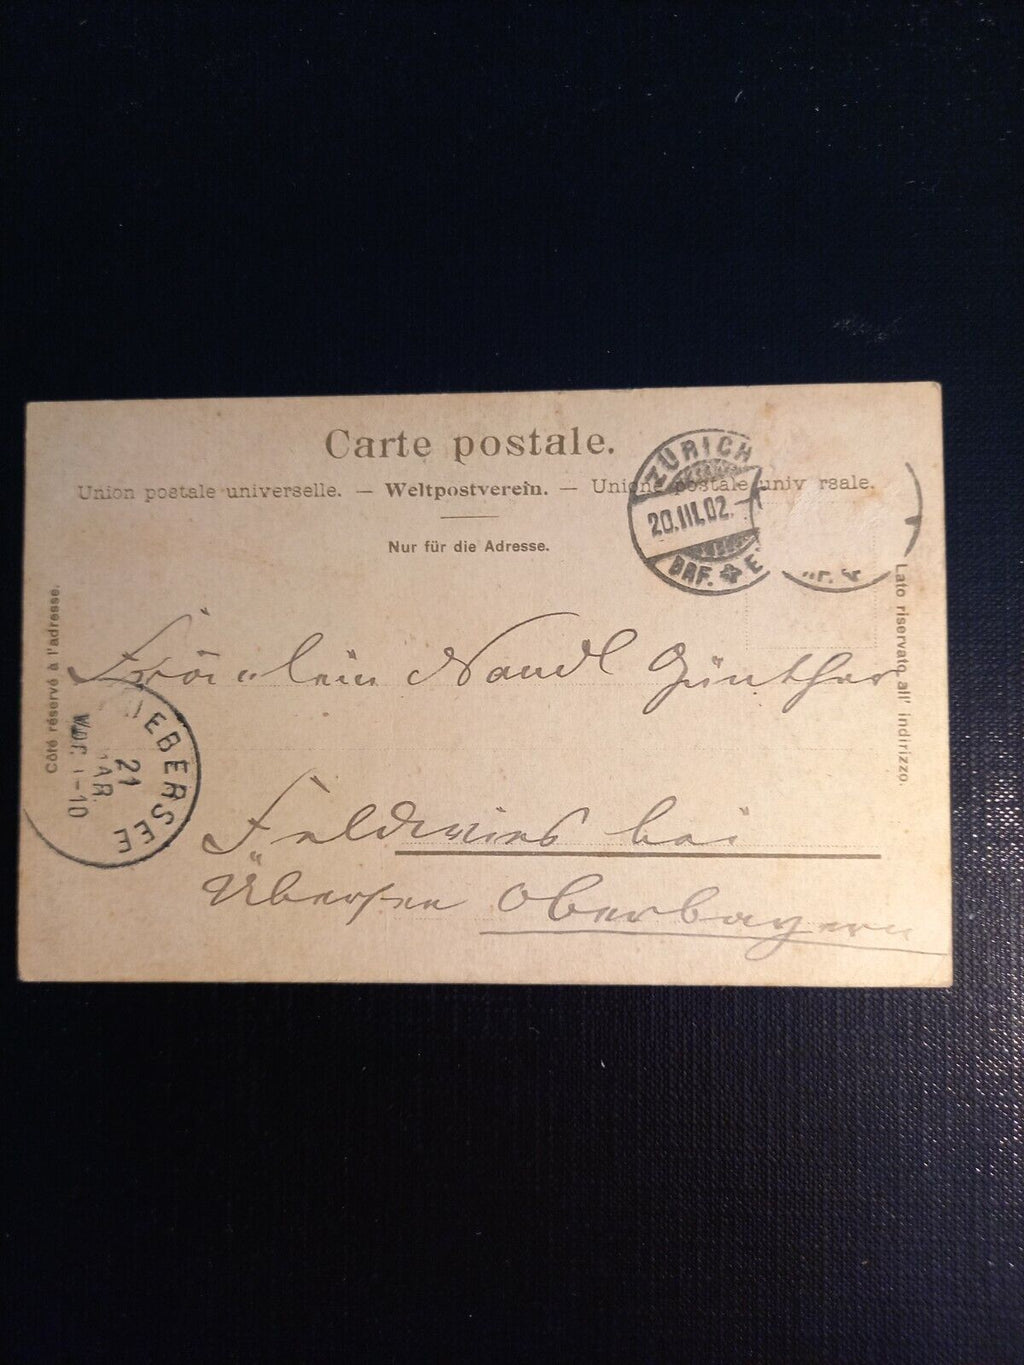 Carte postale.
Union postale universelle. — Weltpostverein. — Unione postale univ rsale.
Nur für die Adresse.
ZÜRICH
20.III.02.
BRF. E
Côté réservé à l'adresse.
Lato riservato all' indirizzo.
Fräulein Nandl Günther
UEBERSEE
21
MAR.
VOR. -10
Feldwies bei
Übersee Oberbayern